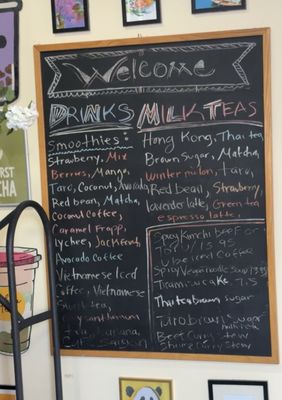 Welcome
DRINKS
Smoothies:
Strawberry, Mix
Berries, Mango,
Taro, Coconut, Avocado
Red bean, Matcha,
Coconut Coffee,
Caramel Frapp,
lychee, Jackfruit,
Avocado Coffee
Vietnamese Iced
Coffee, Vietnamese
MILK TEAS
Hong Kong, Thai tea,
Brown Sugar, Matcha,
Winter milon, Taro,
Red bean, Strawberry,
lavender latte, Green tea
espresso latte.
Spicy Kimchi beef
15.95
Ube iced Coffee
Spicy Veggie noodle Soup 13.95
Tiramisu cake 7.5
Thai tea brown sugar
Taro brown Sugar
Beef Curry stew
Shrimp Curry Stew
CHA